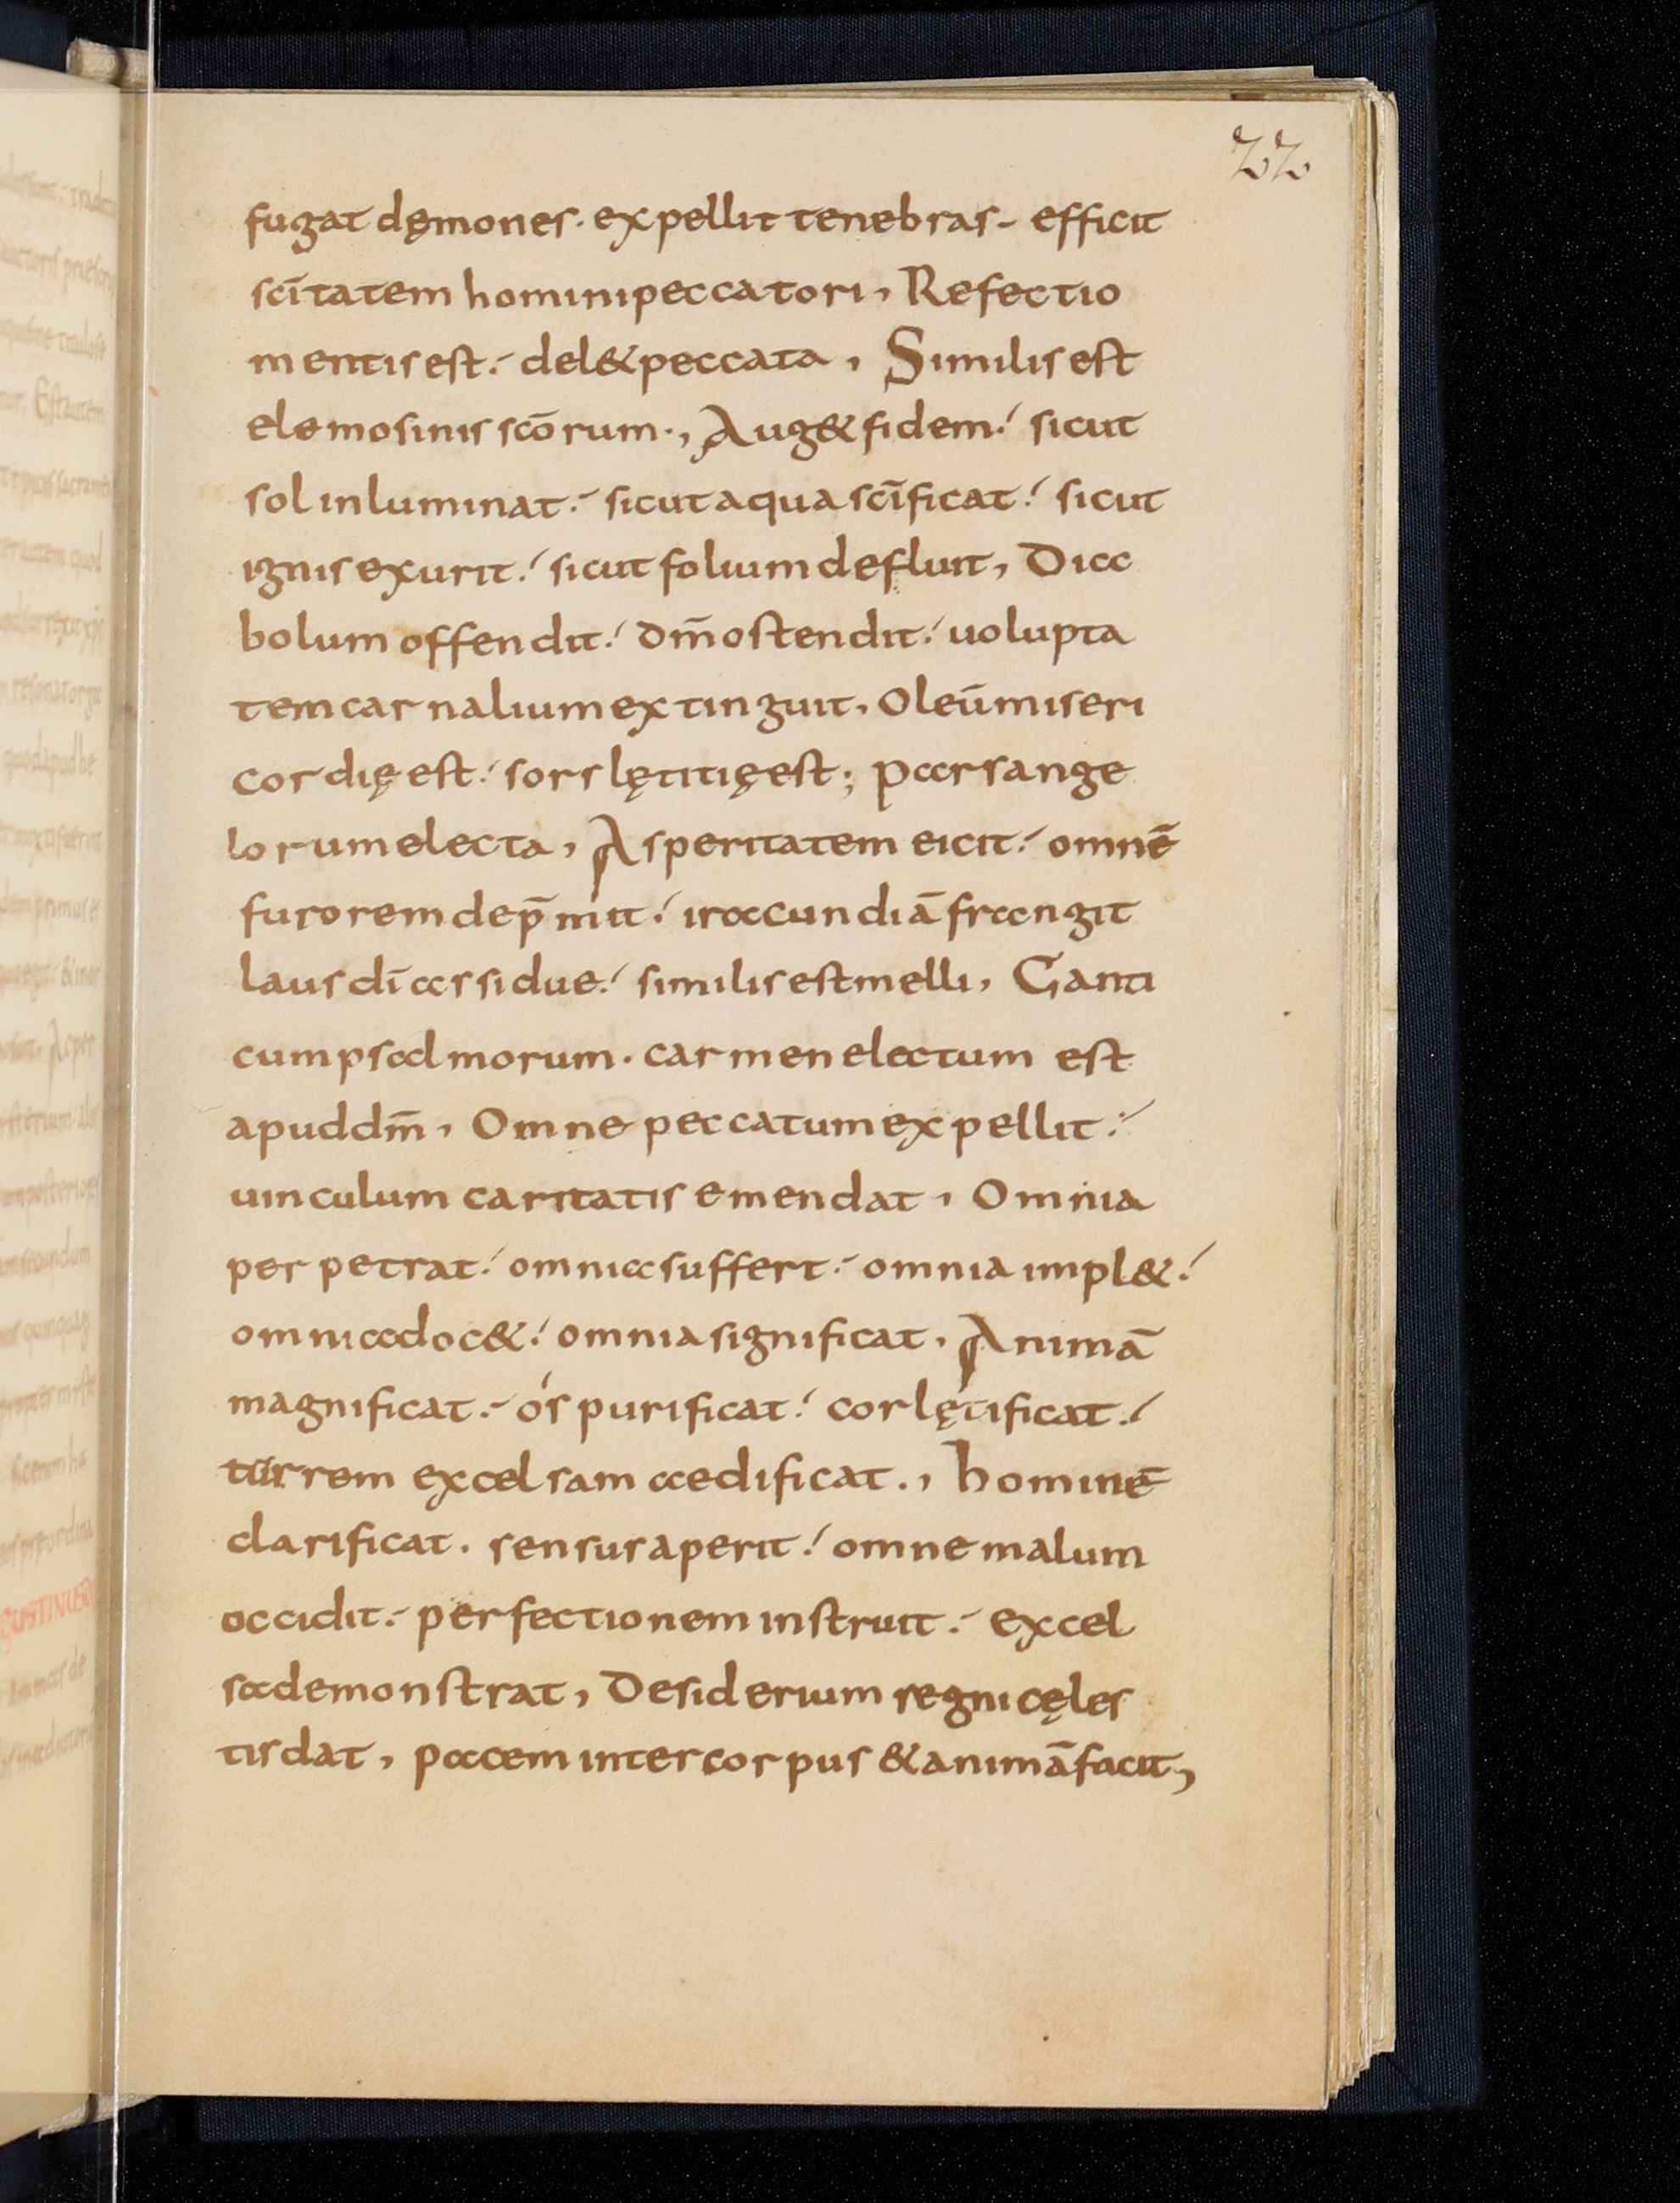 22
fugat dęmones· expellit tenebras- efficit
scītatem homini peccatori, Refectio
mentis est:- del& peccata, Similis est
elemosinis scōrum·, Aug& fidem:/ sicut
sol inluminat:- sicut aqua scīficat:/ sicut
ignis exurit:/ sicut folium defluit, Dia
bolum offendit:/ dm̄ ostendit:/ uolupta
tem carnalium extinguit, Oleū miseri
cordię est:/ sors lętitię est; pars ange
lorum electa, Asperitatem eicit:/ omnē
furorem dep̄mit:/ iracundiā frangit
laus dī assidue:/ similis est melli, Canti
cum psalmorum· carmen electum est
apud dm̄, Omne peccatum expellit:/
uinculum caritatis emendat, Omnia
perpetrat:/ omnia suffert:- omnia impl&:/
omnia doc&:/ omnia significat, Animā
magnificat:- ós purificat:/ cor lętificat:/
turrem excelsam aedificat·, hominē
clarificat· sensus aperit:/ omne malum
occidit:- perfectionem instruit:- excel
sa demonstrat, Desiderium regni cęles
tis dat, pacem inter corpus & animā facit,